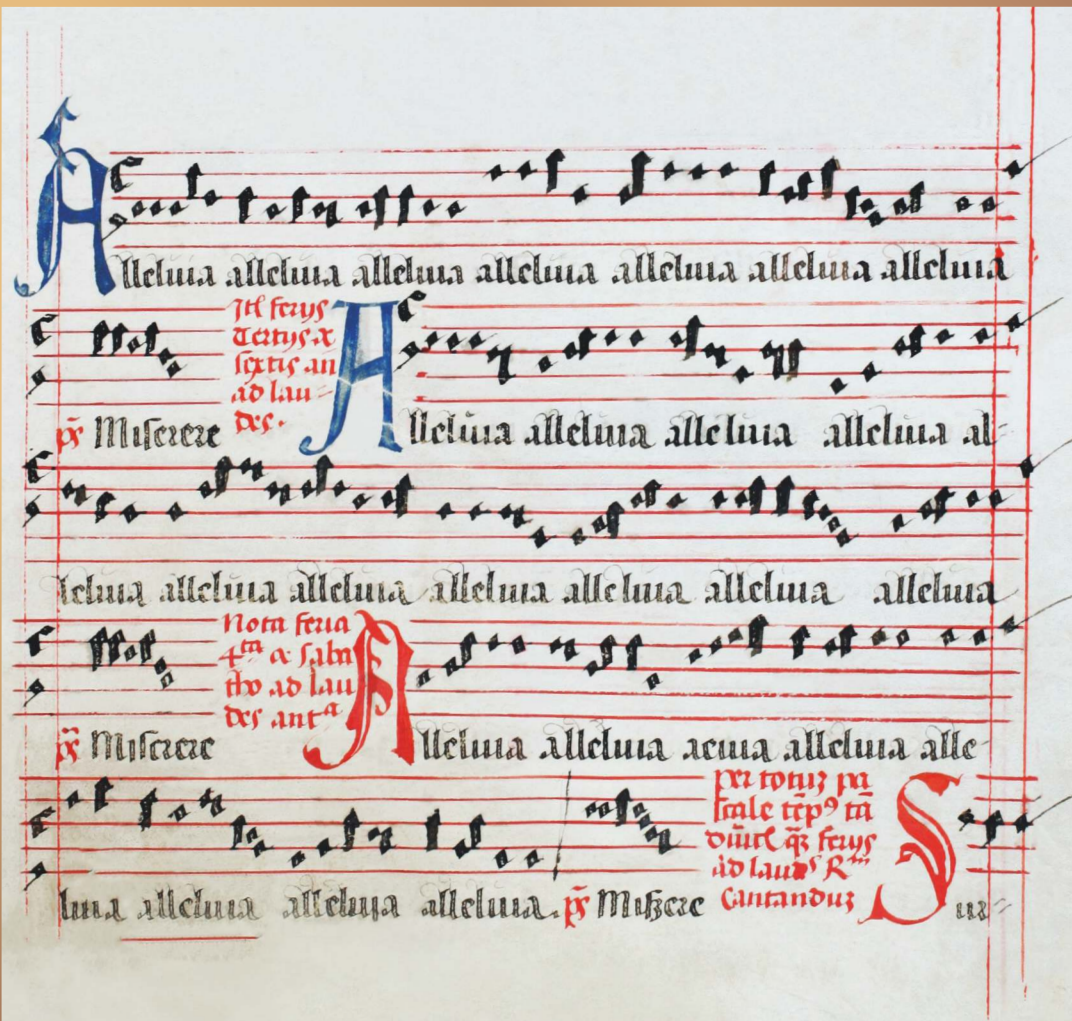 Alleluia alleluia alleluia alleluia alleluia alleluia alleluia
ps Miserere
Itł ferijs
Tertijs &
sextis an
ad lau=
des.
Alleluia alleluia alleluia alleluia al=
leluia alleluia alleluia alleluia alleluia alleluia alleluia
ps Miserere
Nota feria
4ta & saba
tho ad lau
des anta
Alleluia alleluia aeuia alleluia alle=
luia alleluia alleluia alleluia. ps Miserere
per totuz pa
scale tēpꝰ tā
ferijs
ad laudes Rm
Cantanduz
Sur=